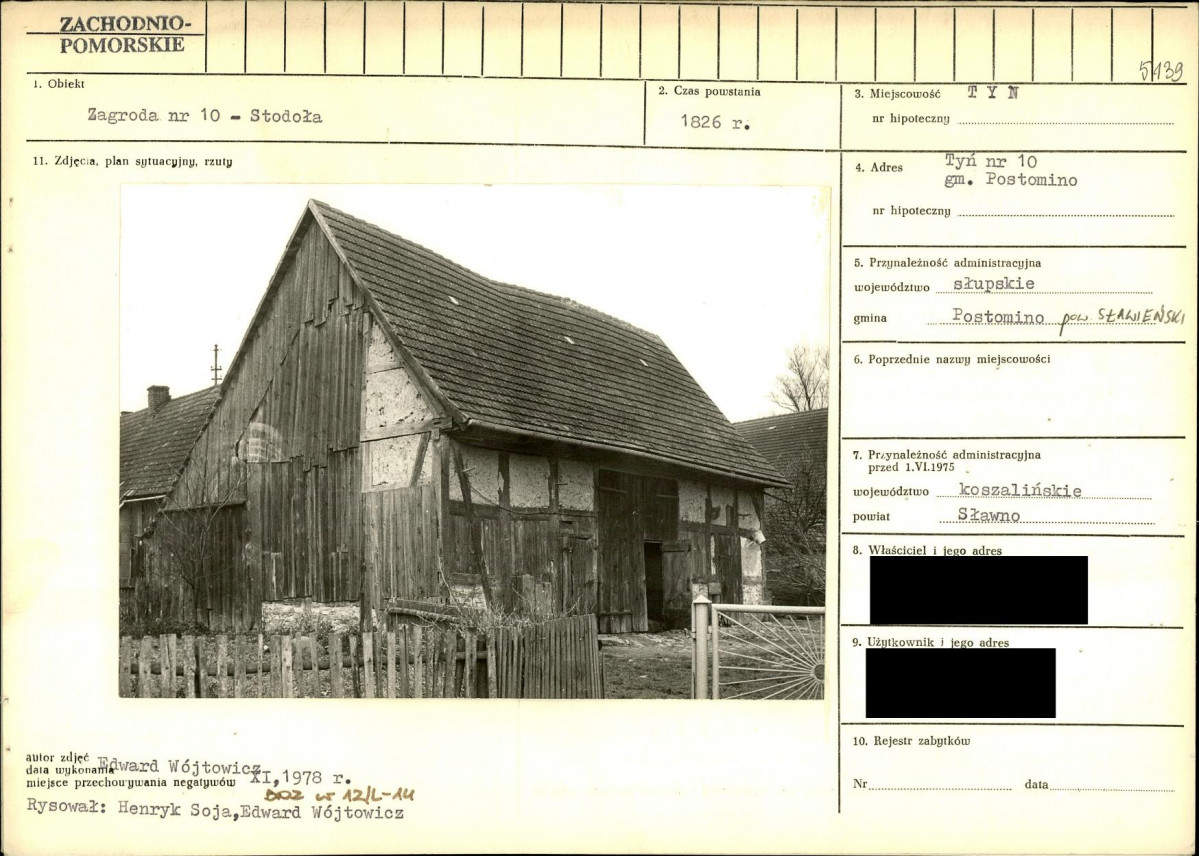 ZACHODNIO-
POMORSKIE
5139
1. Obiekt
Zagroda nr 10 - Stodoła
2. Czas powstania
1826 r.
3. Miejscowość T Y N
nr hipoteczny
11. Zdjęcia, plan sytuacyjny, rzuty
4. Adres Tyń nr 10
gm. Postomino
nr hipoteczny
5. Przynależność administracyjna
województwo słupskie
gmina Postomino pow SŁAWIEŃSKI
6. Poprzednie nazwy miejscowości
7. Przynależność administracyjna
przed 1.VI.1975
województwo koszalińskie
powiat Sławno
8. Właściciel i jego adres
9. Użytkownik i jego adres
10. Rejestr zabytków
Nr data
autor zdjęć Edward Wójtowicz
data wykonania XI,1978 r.
miejsce przechowywania negatywów
12/L-14
Rysował: Henryk Soja,Edward Wójtowicz